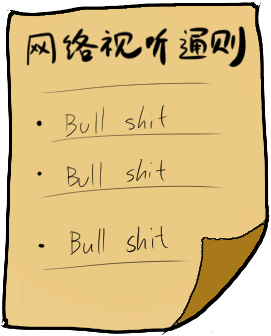 网络视听通则
• Bull shit
• Bull shit
• Bull shit